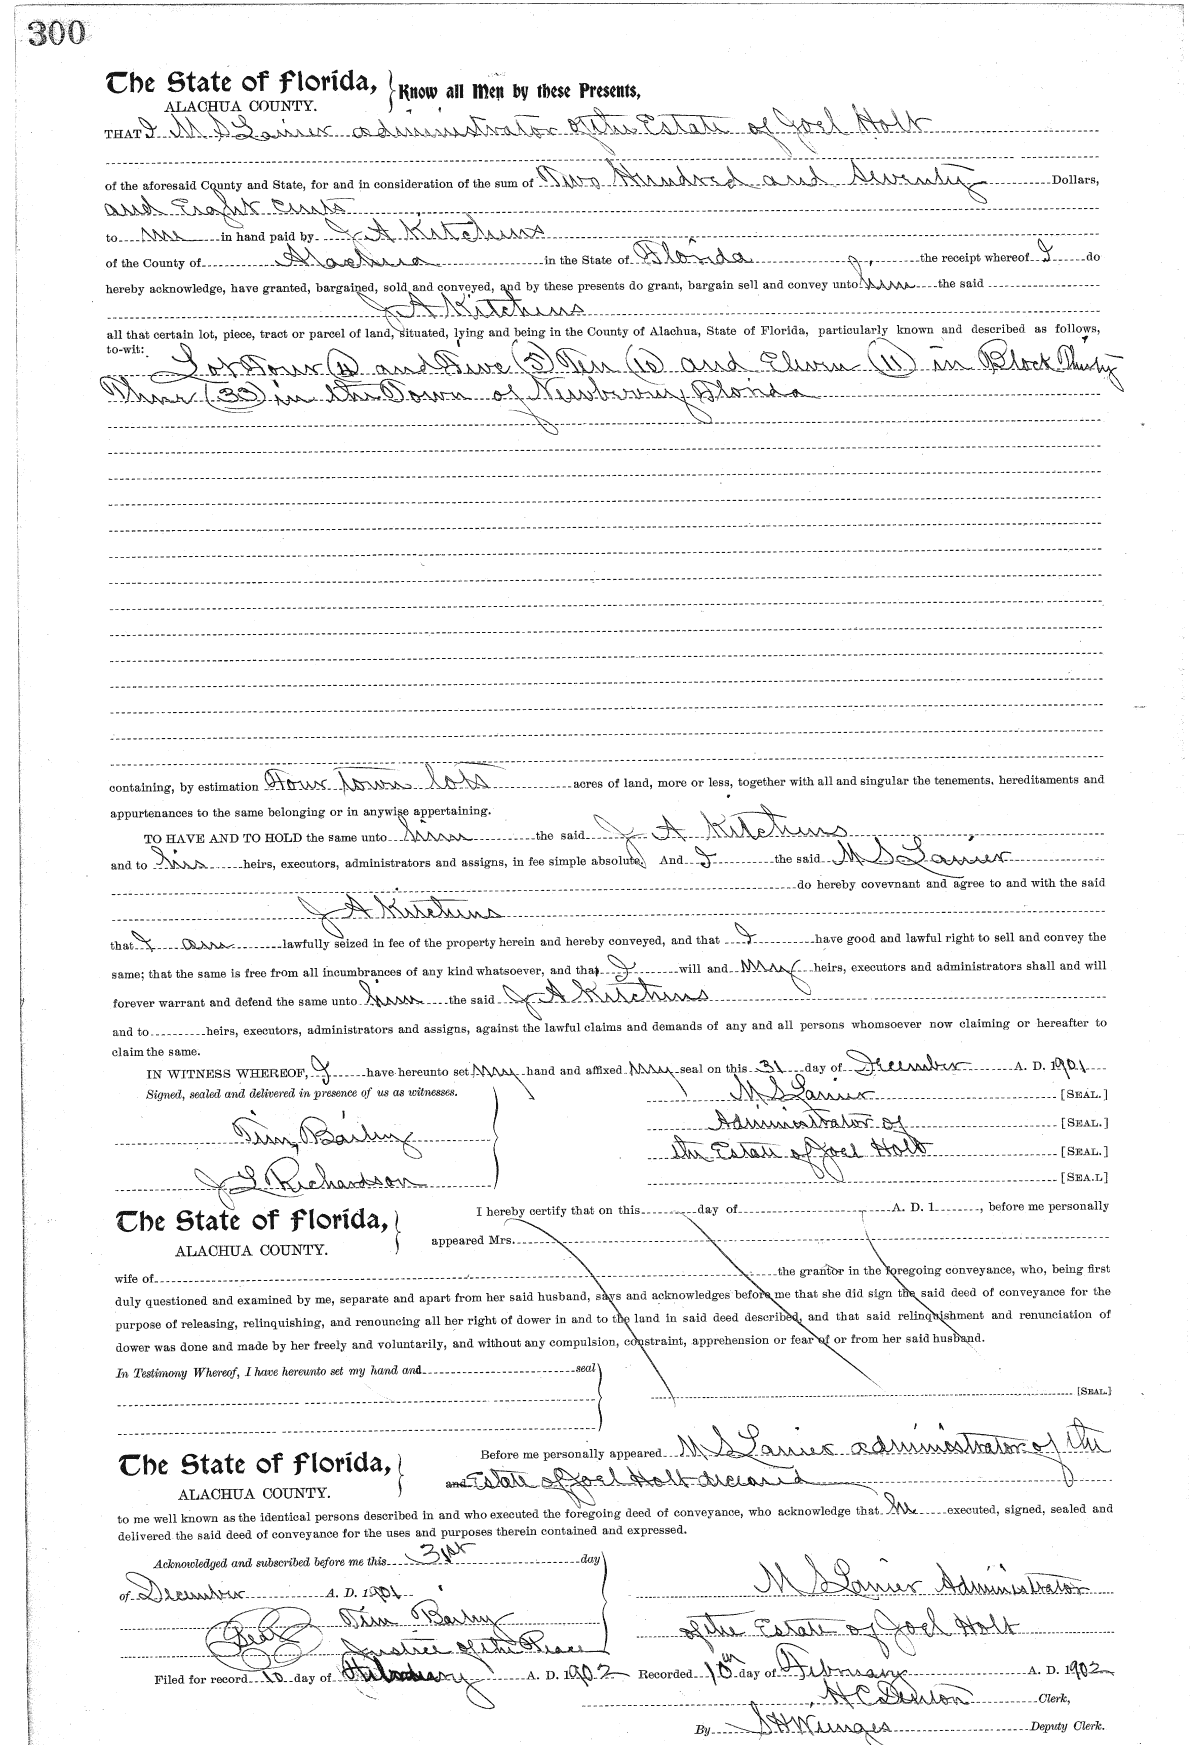 300
The State of Florida, } Know all Men by these Presents,
ALACHUA COUNTY.
THAT I M S Lanier administrator of the Estate of Joel Holt
of the aforesaid County and State, for and in consideration of the sum of Two Hundred and Seventy Dollars,
and Eight Cents
to me in hand paid by J A Kitchens
of the County of Alachua in the State of Florida, the receipt whereof I do
hereby acknowledge, have granted, bargained, sold and conveyed, and by these presents do grant, bargain sell and convey unto him the said
J A Kitchens
all that certain lot, piece, tract or parcel of land, situated, lying and being in the County of Alachua, State of Florida, particularly known and described as follows,
to-wit: Lot Four (4) and Five (5) Ten (10) and Eleven (11) in Block Thirty
Three (33) in the Town of Newberry Florida
containing, by estimation Four town lots acres of land, more or less, together with all and singular the tenements, hereditaments and
appurtenances to the same belonging or in anywise appertaining.
TO HAVE AND TO HOLD the same unto him the said J A Kitchens
and to his heirs, executors, administrators and assigns, in fee simple absolute. And I the said M S Lanier
do hereby covevnant and agree to and with the said
J A Kitchens
that I am lawfully seized in fee of the property herein and hereby conveyed, and that I have good and lawful right to sell and convey the
same; that the same is free from all incumbrances of any kind whatsoever, and that I will and my heirs, executors and administrators shall and will
forever warrant and defend the same unto him the said J A Kitchens
and to heirs, executors, administrators and assigns, against the lawful claims and demands of any and all persons whomsoever now claiming or hereafter to
claim the same.
IN WITNESS WHEREOF, I have hereunto set my hand and affixed my seal on this 31 day of December A. D. 1901
Signed, sealed and delivered in presence of us as witnesses. M S Lanier [SEAL.]
Administrator of [SEAL.]
Tim, Bailey the Estate of Joel Holt [SEAL.]
J L Richardson [SEA.L]
The State of Florida, I hereby certify that on this day of A. D. 1 , before me personally
ALACHUA COUNTY. appeared Mrs.
wife of the grantor in the foregoing conveyance, who, being first
duly questioned and examined by me, separate and apart from her said husband, says and acknowledges before me that she did sign the said deed of conveyance for the
purpose of releasing, relinquishing, and renouncing all her right of dower in and to the land in said deed described, and that said relinquishment and renunciation of
dower was done and made by her freely and voluntarily, and without any compulsion, constraint, apprehension or fear of or from her said husband.
In Testimony Whereof, I have hereunto set my hand and seal
[SEAL.]
The State of Florida, Before me personally appeared M S Lanier administrator of the
ALACHUA COUNTY. and Estate of Joel Holt deceased
to me well known as the identical persons described in and who executed the foregoing deed of conveyance, who acknowledge that he executed, signed, sealed and
delivered the said deed of conveyance for the uses and purposes therein contained and expressed.
Acknowledged and subscribed before me this 31st day
of December A. D. 1901 M S Lanier Administrator
(Seal) Tim Bailey of the Estate of Joel Holt
Justice of the Peace
Filed for record 10 day of February A. D. 1902 Recorded 10th day of February A. D. 1902
H C Denton Clerk,
By S H Wienges Deputy Clerk.